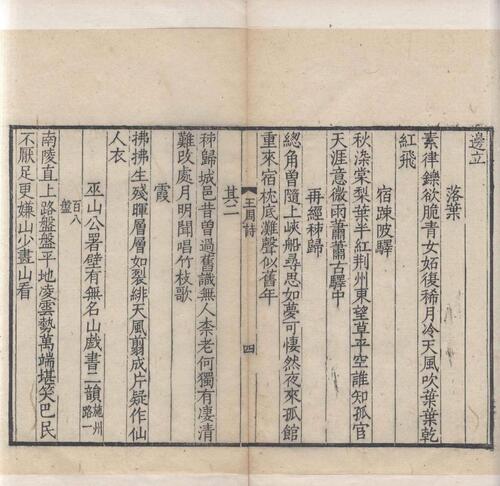 邊立
落葉
素律鑠欲脆青女妬復稀月冷天風吹葉葉乾
紅飛
宿疎陂驛
秋染棠梨葉半紅荆州東望草平空誰知孤官
天涯意微雨蕭蕭古驛中
再經秭歸
總角曾隨上峽船尋思如夢可悽然夜來孤館
重來宿枕底灘聲似舊年
王周詩 四
其二
秭歸城邑昔曾過舊識無人柰老何獨有凄清
難改處月明聞唱竹枝歌
霞
拂拂生殘暉層層如裂緋天風翦成片疑作仙
人衣
巫山公署壁有無名山戲書二韻施州路一
百八盤
南陵直上路盤盤平地凌雲勢萬端堪笑巴民
不厭足更嫌山少畫山看